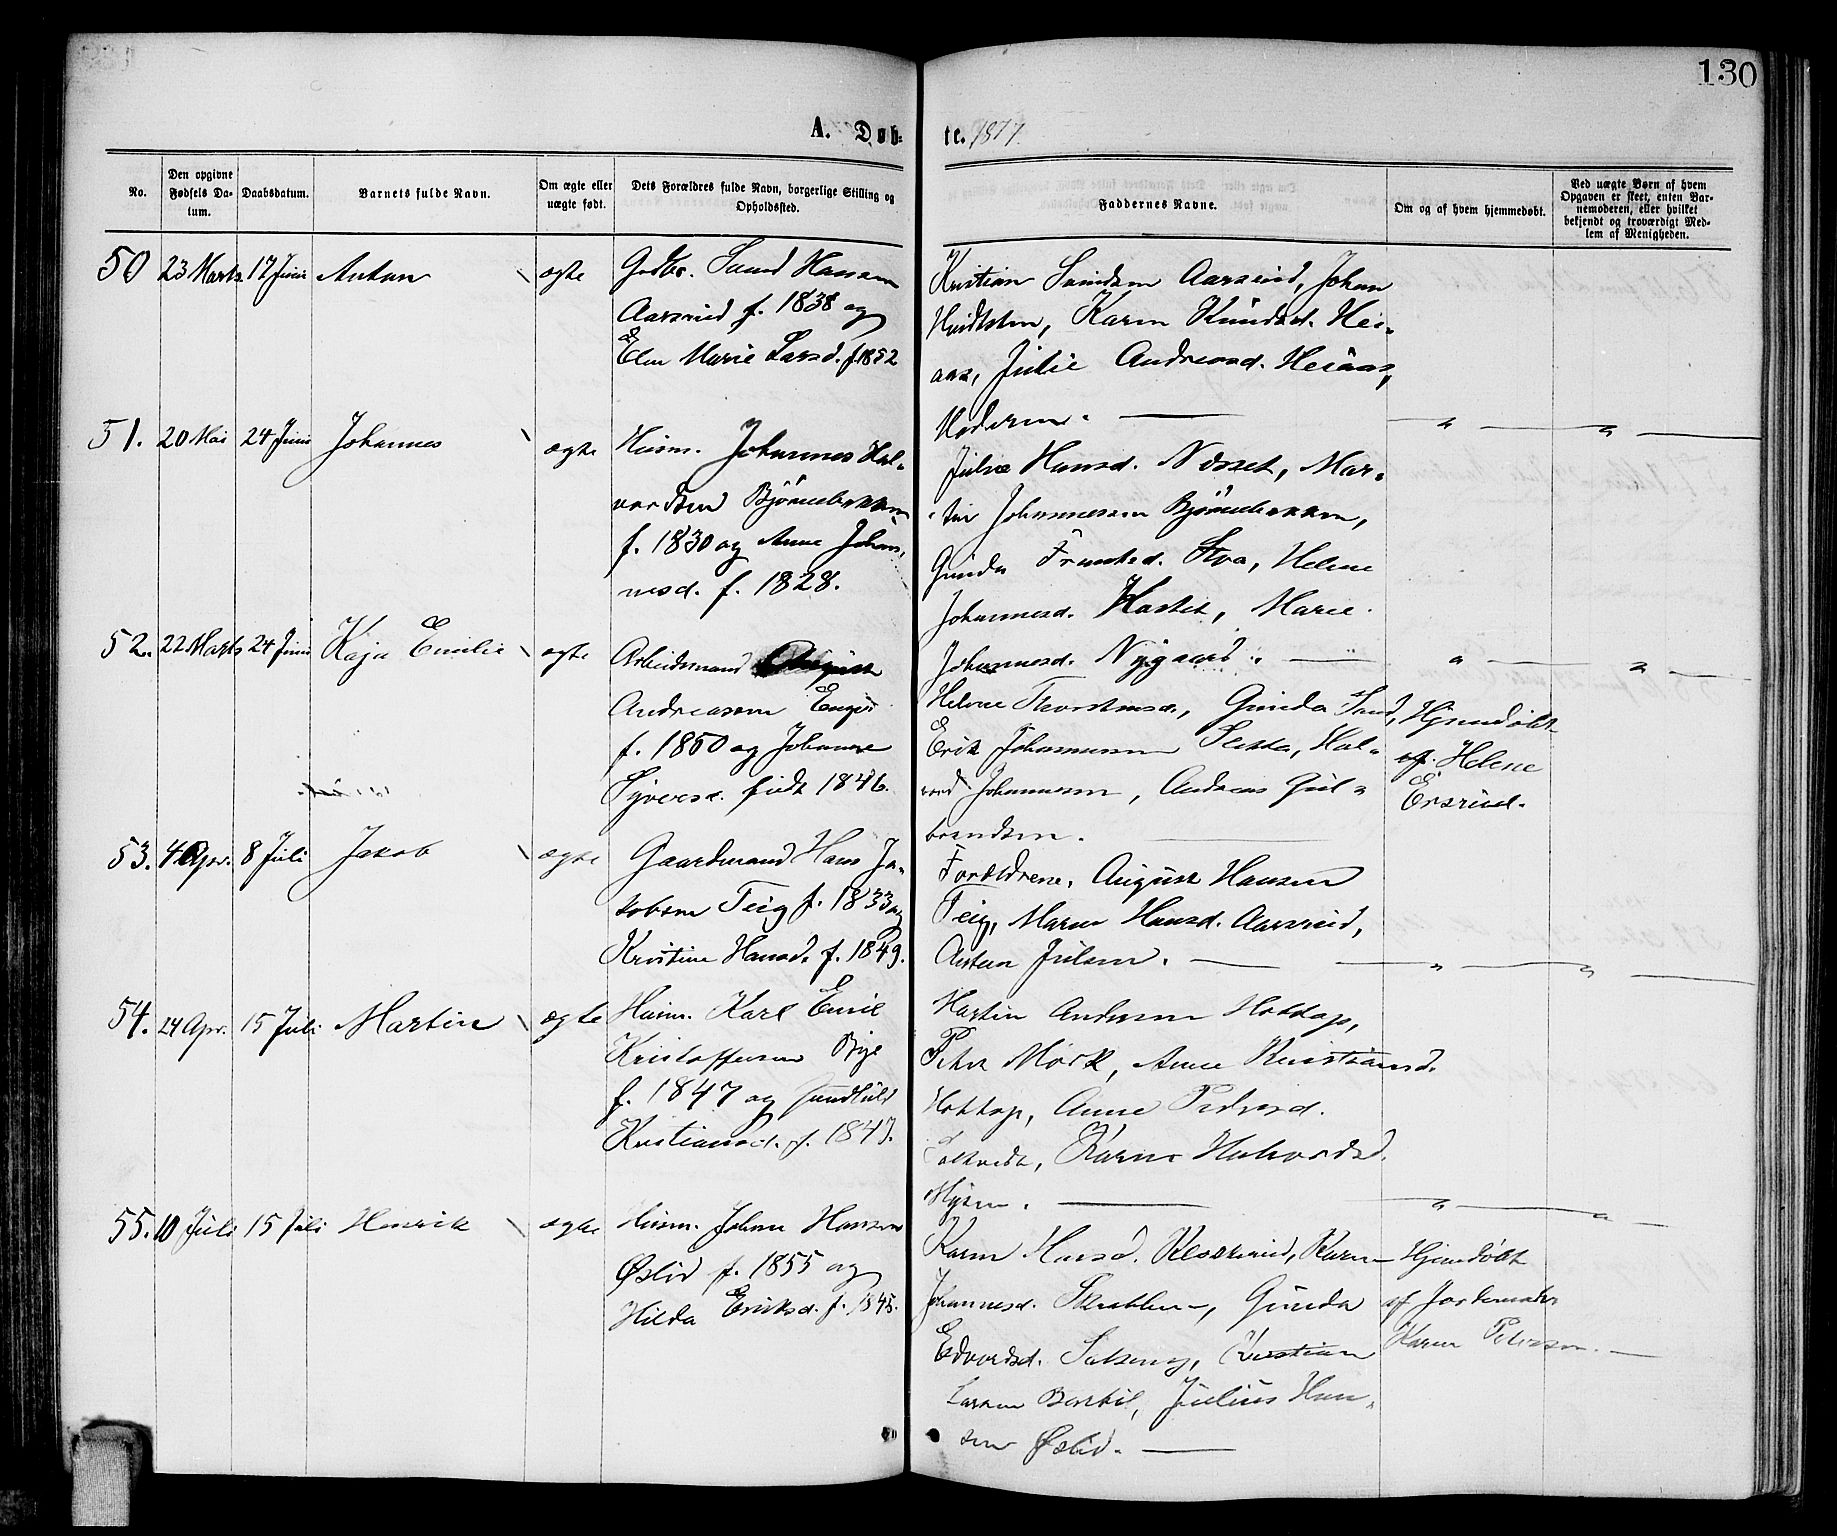 130
A. Døb-
te. 1877.
No.
Den opgivne Fødsels Da-tum.
Daabsdatum.
Barnets fulde Navn.
Om ægte eller uægte født.
Dets Forældres fulde Navn, borgerlige Stilling og Opholdssted.
Faddernes Navne.
Om og af hvem hjemmedøbt.
Ved uægte Børn af hvem Opgaven er skeet, enten Bar-nemoderen, eller hvilket bekjendt og troværdigt Med-lem af Menigheden.
50 23 Marts 17 Juni Anton ægte
Gdbr. Hansen
Aarsrud f. 1838 og
Elen Marie Larsd. f. 1852
Kristian Aarsrud, Johan
Karen Knudsd. Hei-
aas, Julie Andreasd. Heiaas,
Moderen. — " — " —
51. 20 Mai 24 Juni Johannes ægte
Husm. Johannes Hal-
vordsen Bjørnebækken
f. 1830 og Anne Johan-
nesd. f. 1828.
Julie Hansd. Næsset, Mar-
tin Johannesen Bjørnebækken,
Gunda Frantsd. Helene
Johannesd. Marie
Johannesd. Nygaard. — " — " —
52. 22 Marts 24 Juni Kaja Emilie ægte
Arbeidsmand August
Andreasen Enger
f. 1850 og Johanne
Syversd. født 1846.
Helene Thorstensd., Gunda
Erik Johannesen Hal-
vord Johannesen, Andreas Gul-
brandsen. —
Hjemdøbt
af Helene
Ersrud.
53. 4 Apr. 8 Juli Jakob ægte
Gaardmand Hans Ja-
kobsen Teig f. 1833 og
Kristine Hansd. f. 1849.
Forældrene, August Hansen
Teig, Maren Hansd. Aarsrud,
Julsen. — " — " —
54. 24 Apr. 15 Juli Martin ægte
Husm. Karl Emil
Kristoffersen Bye
f. 1847 og Gundhild
Kristiansd. f. 1847.
Martin Andersen Hottop,
Peter Mørk, Anne Kristiansd.
Hottop, Anne Pedersd.
Karen Halvordsd.
Myren. — " — " —
55. 10 Juli 15 Juli Henrik ægte
Husm. Johan Hansen
Øslid f. 1855 og
Hilda Eriksd. f. 1845.
Karen Hansd. Karen
Johannesd. Gunda
Edvardsd. Kristian
Larsen Julius Han-
sen Øslid. —
Hjemdøbt
af Jordemoder
Karen Petersen. —